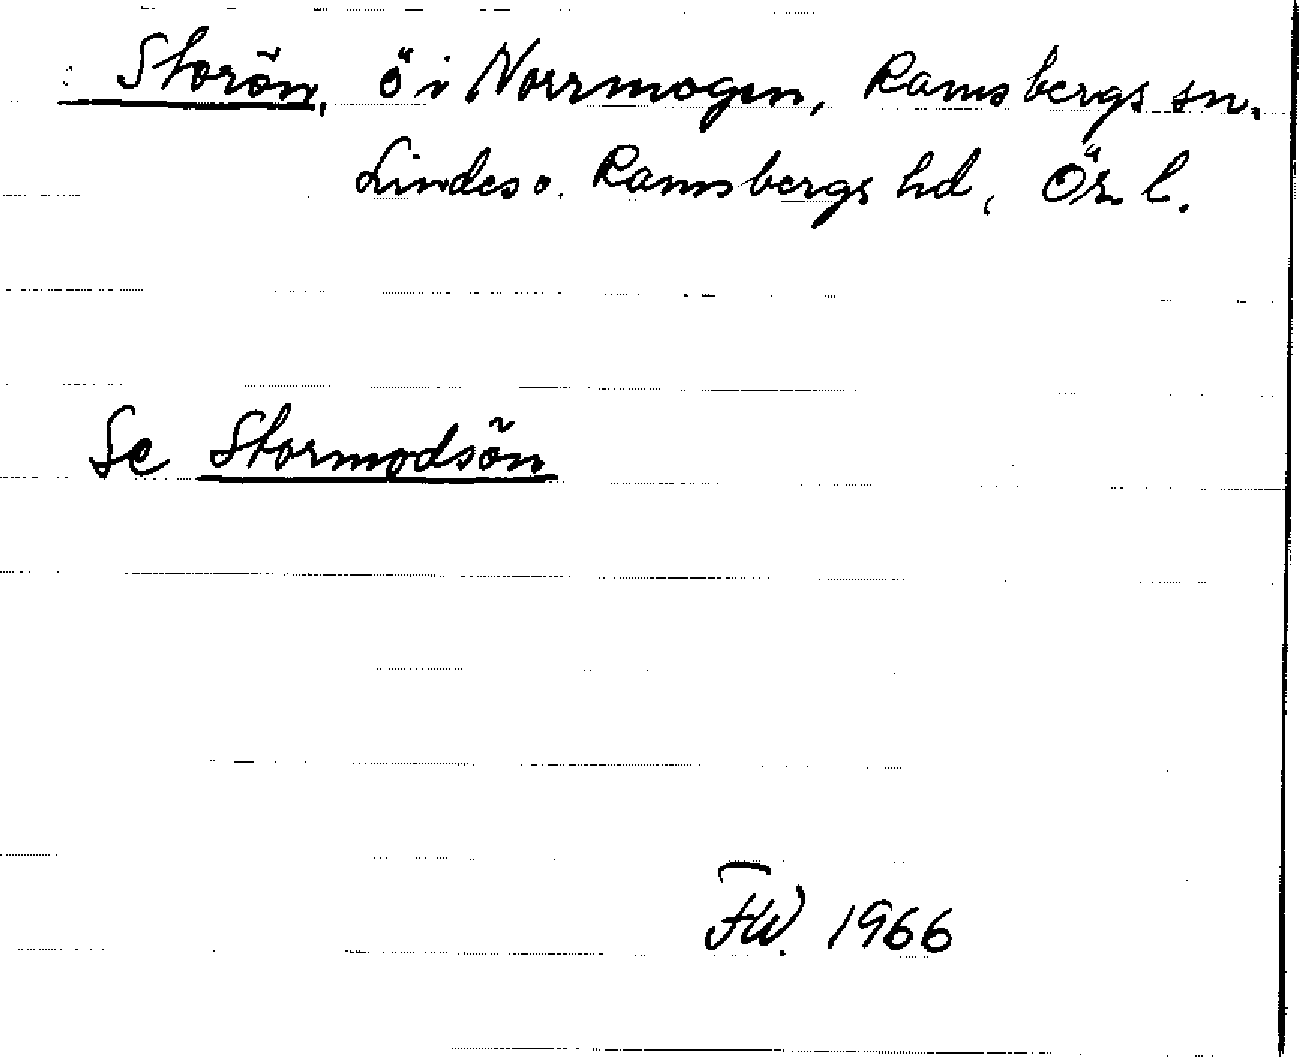 Storön, ö i Norrmogen, Ramsbergs sn.
Lindes o. Ramsbergs hd, Ör. l.
Se Stormodsön
FW. 1966